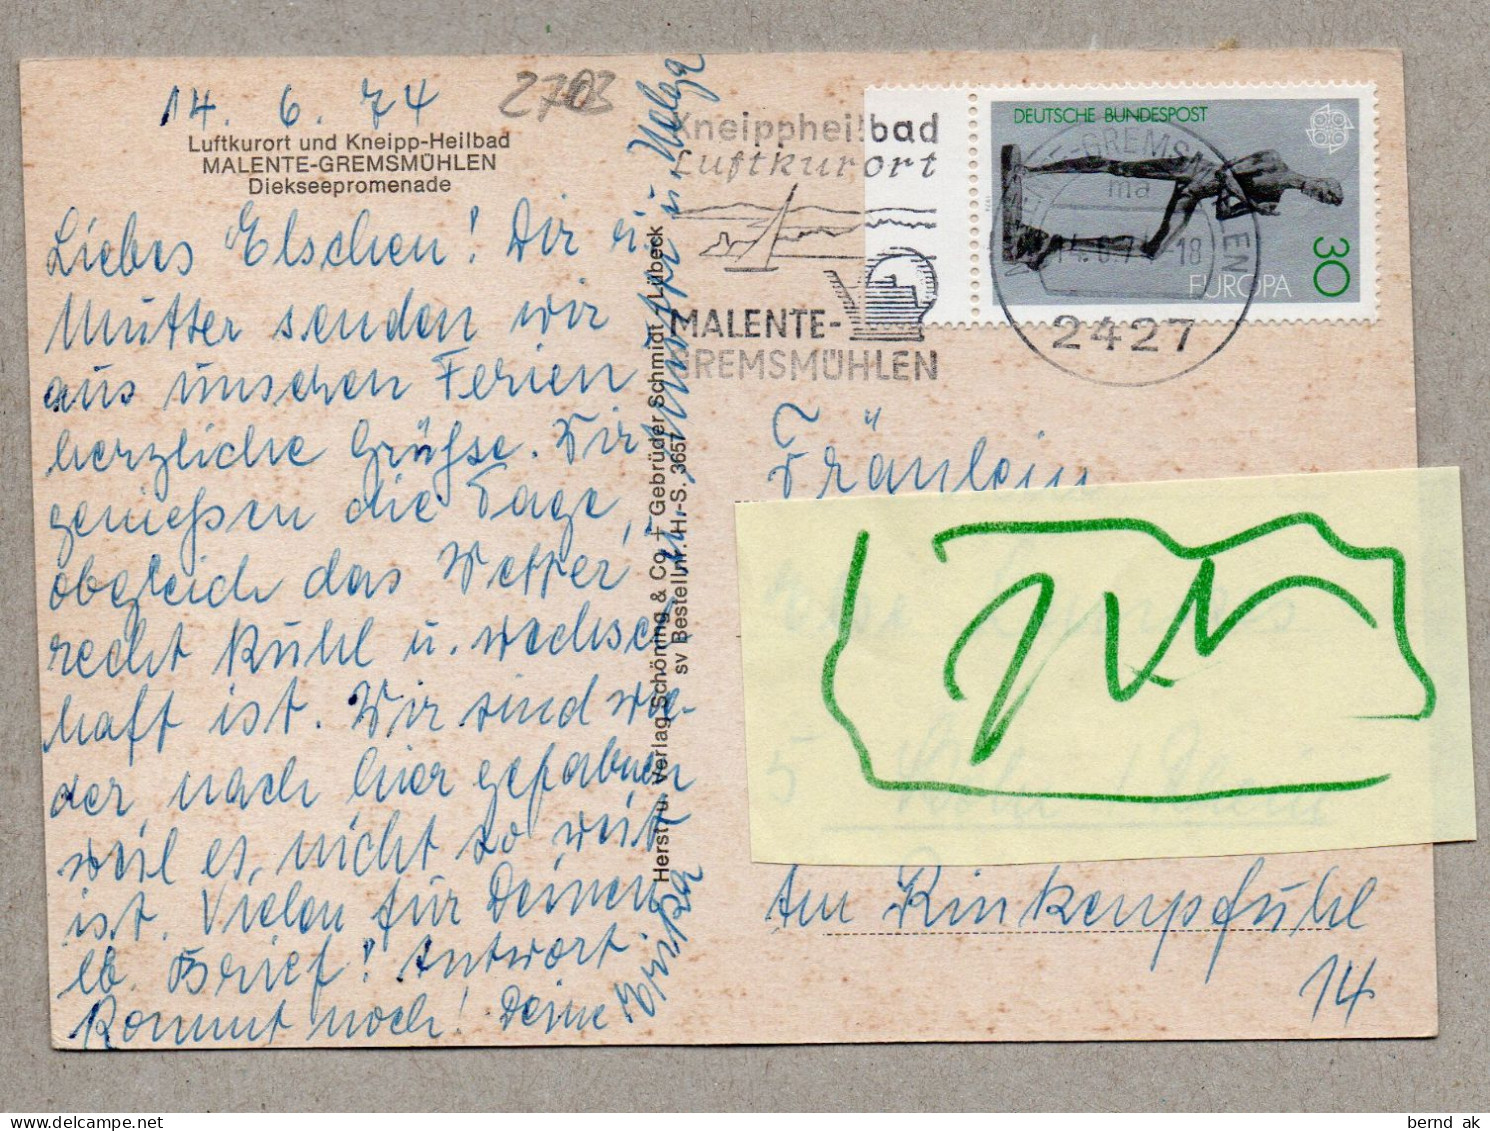 14. 6. 74
2703
Luftkurort und Kneipp-Heilbad
MALENTE-GREMSMÜHLEN
Diekseepromenade
Liebes Elschen! Dir u.
Mutter senden wir
aus unseren Ferien
herzliche Grüße. Wir
genießen die Tage,
obgleich das Wetter
recht kühl u. wechsel-
haft ist. Wir sind wie-
der nach hier gefahren
weil es nicht so weit
ist. Vielen für Deinen
lb. Brief! Antwort
kommt noch! Deine
u. Helga
Herst. u. Verlag Schöning & Co. + Gebrüder Schmidt, Lübeck
sv Bestellnr. H.-S. 3657
Kneippheilbad
Luftkurort
MALENTE-
GREMSMÜHLEN
DEUTSCHE BUNDESPOST
EUROPA
30
MALENTE-GREMSMÜHLEN
ma
14.6.74-18
2427
Fräulein
5 Köln / Rhein
Am Rinkenpfuhl
14
bernd ak